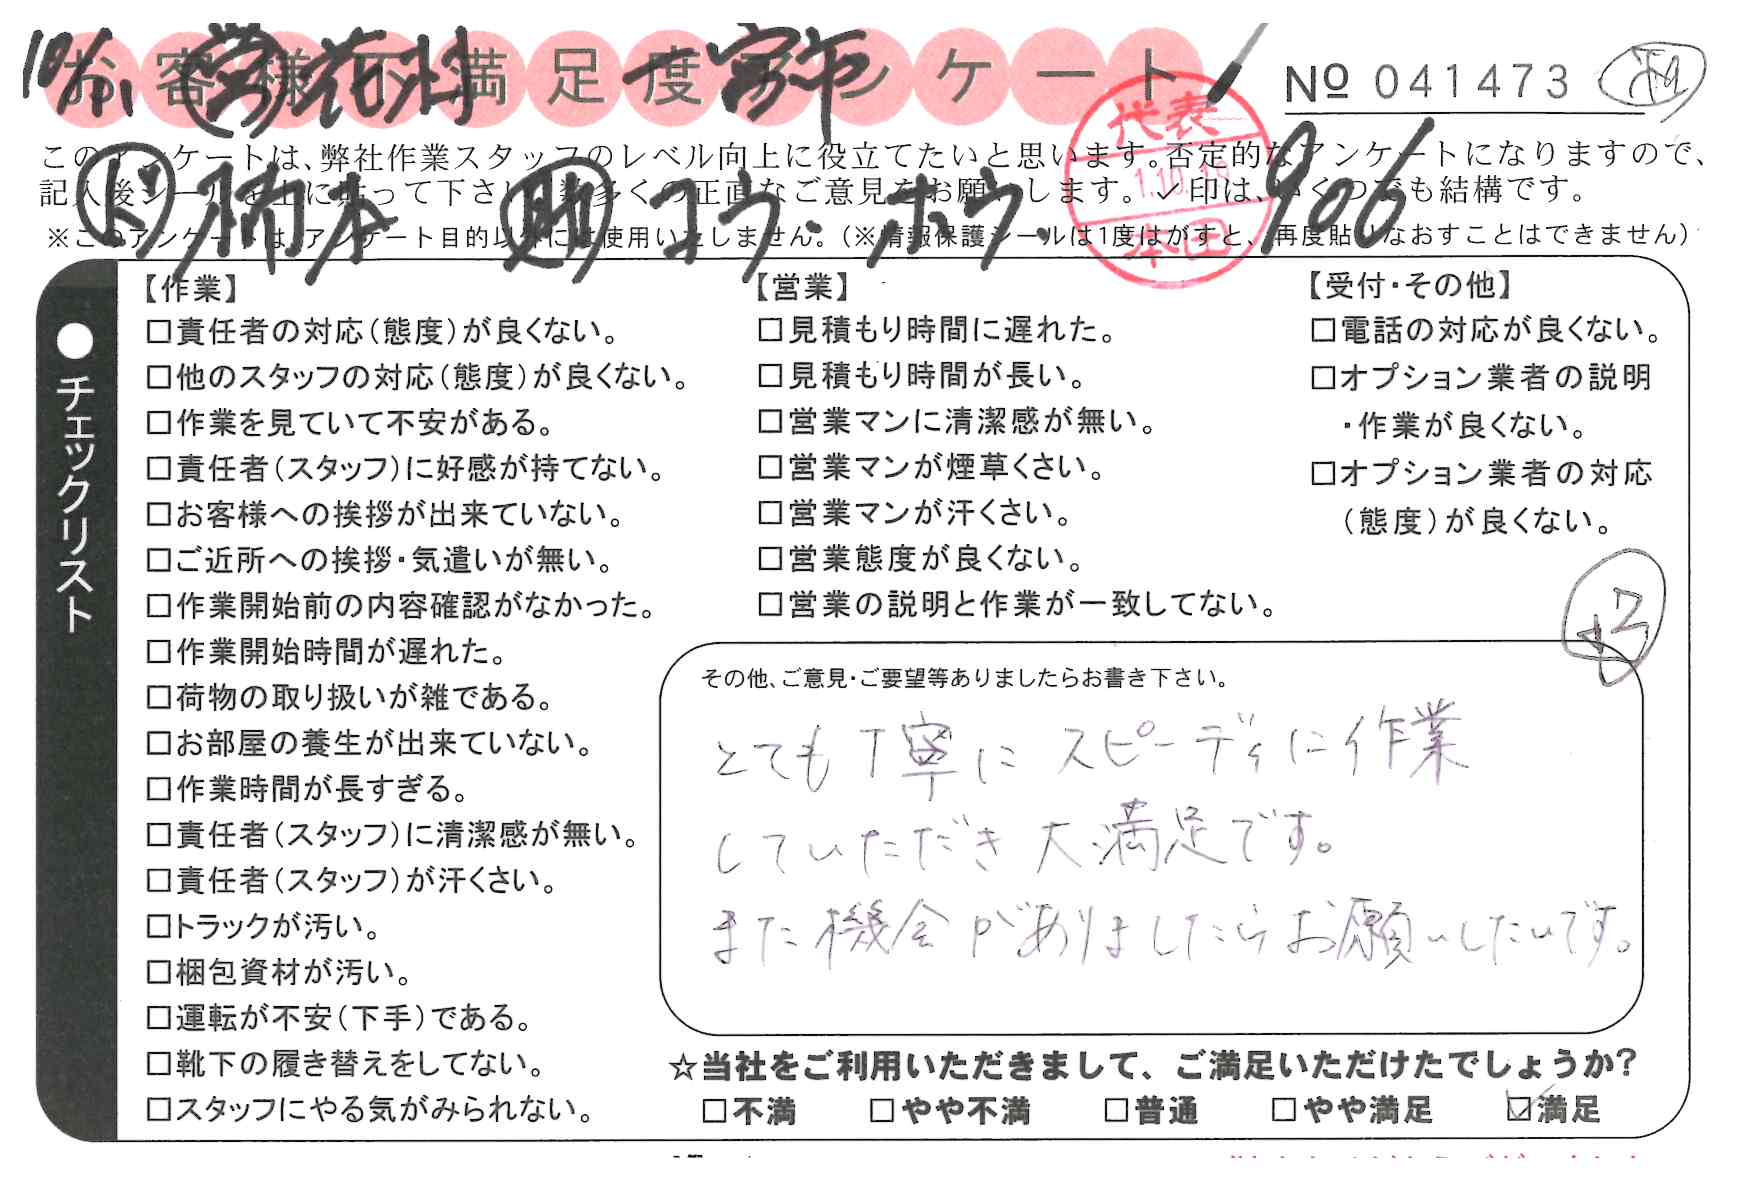 お客様不満足度アンケート
№ 041473
このアンケートは、弊社作業スタッフのレベル向上に役立てたいと思います。否定的なアンケートになりますので、
記入後シールを上に貼って下さい。数多くの正直なご意見をお願いします。✓印は、いくつでも結構です。
※このアンケートは、アンケート目的以外には使用いたしません。(※情報保護シールは1度はがすと、再度貼りなおすことはできません)
10/11 一宮市
代表
1.10.16
本田
ド 柿本 助 コウ・ホウ 906
●チェックリスト
【作業】
□責任者の対応(態度)が良くない。
□他のスタッフの対応(態度)が良くない。
□作業を見ていて不安がある。
□責任者(スタッフ)に好感が持てない。
□お客様への挨拶が出来ていない。
□ご近所への挨拶・気遣いが無い。
□作業開始前の内容確認がなかった。
□作業開始時間が遅れた。
□荷物の取り扱いが雑である。
□お部屋の養生が出来ていない。
□作業時間が長すぎる。
□責任者(スタッフ)に清潔感が無い。
□責任者(スタッフ)が汗くさい。
□トラックが汚い。
□梱包資材が汚い。
□運転が不安(下手)である。
□靴下の履き替えをしてない。
□スタッフにやる気がみられない。
【営業】
□見積もり時間に遅れた。
□見積もり時間が長い。
□営業マンに清潔感が無い。
□営業マンが煙草くさい。
□営業マンが汗くさい。
□営業態度が良くない。
□営業の説明と作業が一致してない。
【受付・その他】
□電話の対応が良くない。
□オプション業者の説明
・作業が良くない。
□オプション業者の対応
(態度)が良くない。
その他、ご意見・ご要望等ありましたらお書き下さい。
とても丁寧に スピーディに作業
していただき大満足です。
また機会がありましたらお願いしたいです。
☆当社をご利用いただきまして、ご満足いただけたでしょうか?
□不満 □やや不満 □普通 □やや満足 ☑満足